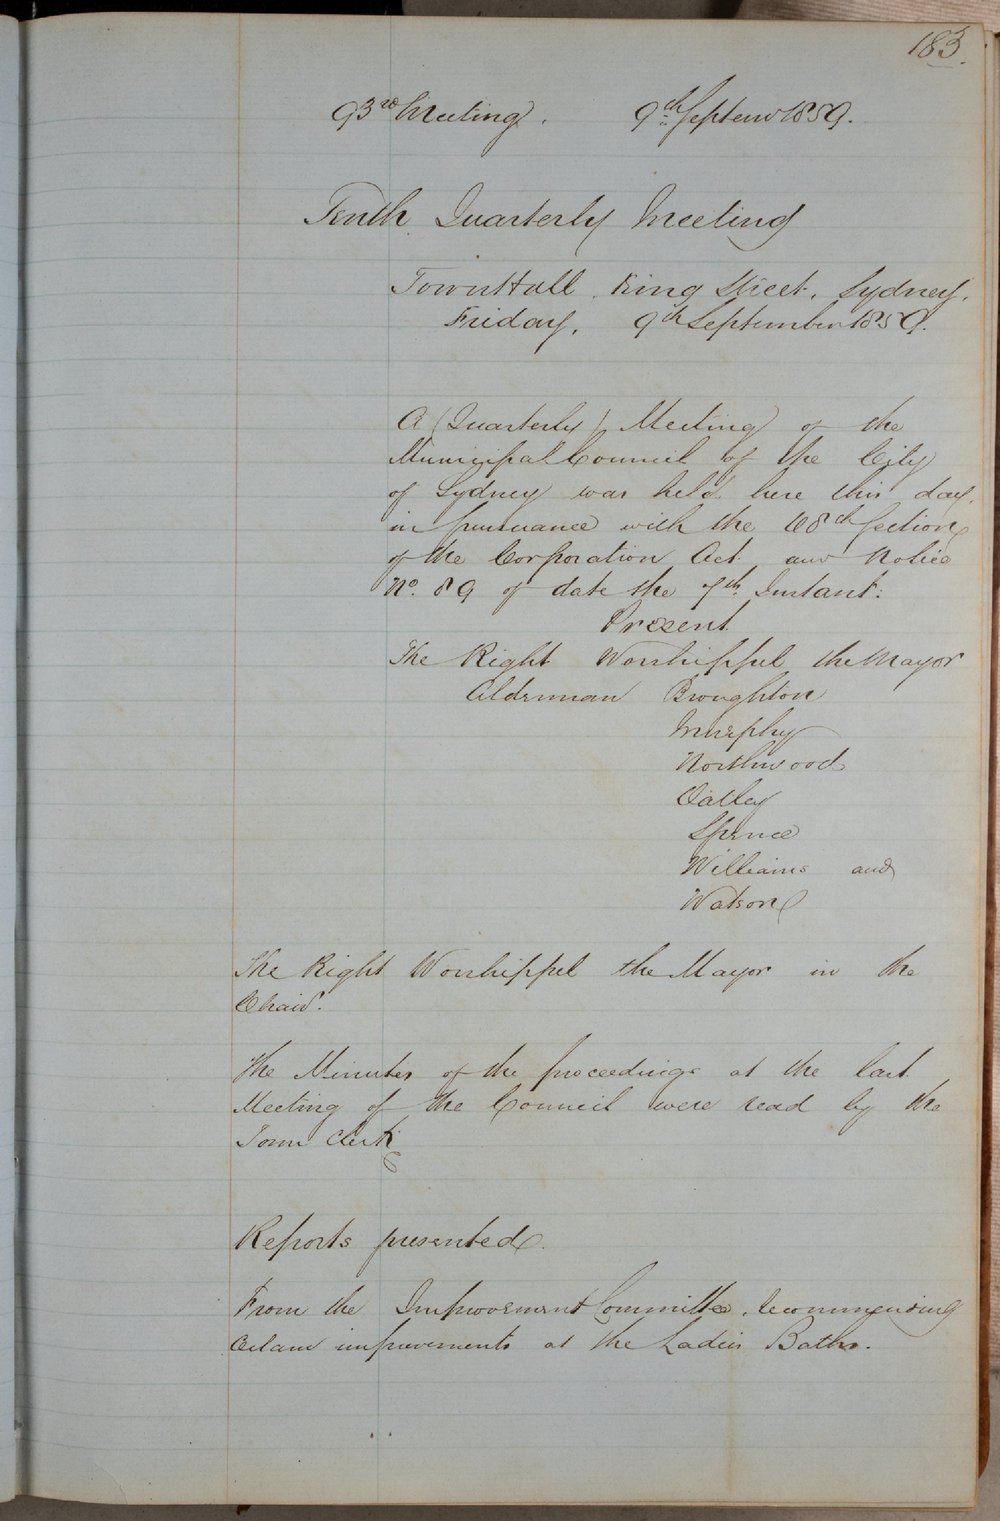 183.
93rd Meeting. 9th Septemr 1859.
Tenth Quarterly Meeting
Town Hall, King Street, Sydney,
Friday, 9th September 1859.
A (Quarterly) Meeting of the
Municipal Council of the City
of Sydney was held here this day,
in pursuance with the 108th Section
of the Corporation Act and Notice
No. 89 of date the 7th Instant:
Present
The Right Worshipful the Mayor
Alderman Broughton
Murphy
Northwood
Oatley
Spence
Williams and
Watson
The Right Worshipful the Mayor in the
Chair.
The Minutes of the proceedings at the last
Meeting of the Council were read by the
Town Clerk
Reports presented.
From the Improvement Committee, recommending
certain improvements at the Ladies Baths.